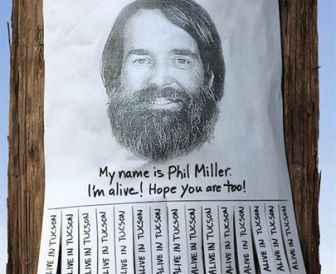 My name is Phil Miller.
I'm alive! Hope you are too!
ALIVE IN TUCSON
ALIVE IN TUCSON
ALIVE IN TUCSON
ALIVE IN TUCSON
ALIVE IN TUCSON
ALIVE IN TUCSON
ALIVE IN TUCSON
ALIVE IN TUCSON
ALIVE IN TUCSON
ALIVE IN TUCSON
ALIVE IN TUCSON
ALIVE IN TUCSON
ALIVE IN TUCSON
ALIVE IN TUCSON